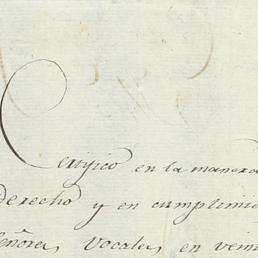 Certifico en la manera
derecho y en cumplimie
señores Vocales, en vein